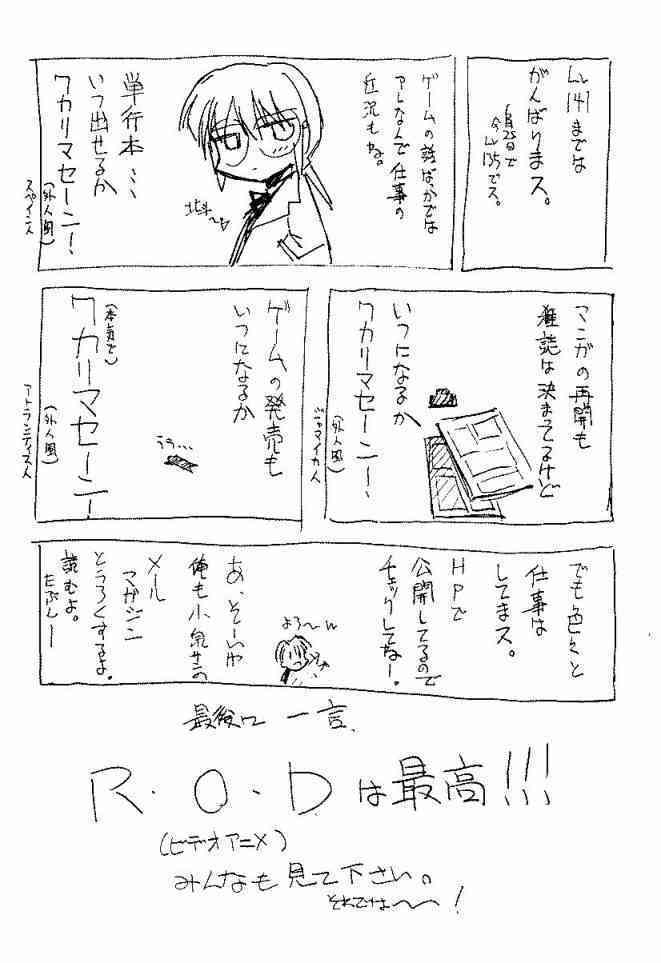 Lv141までは
がんばりまス。
6月25日で
今Lv135でス。
ゲームの話ばっかでは
アレなんで仕事の
近況もね。
北斗〜
単行本…
いつ出せるか
ワカリマセーン!
(外人風)
スペイン人
マンガの再開も
雑誌は決まってるけど
いつになるか
ワカリマセーン!
(外人風)
ジャマイカ人
ゲームの発売も
いつになるか
うう…
(本気で)
ワカリマセーン!
(外人風)
アトランティス人
でも色々と
仕事は
してまス。
HPで
公開してるので
チェックしてねー!
よろ〜
あ、そーいや
俺も小泉サンの
メール
マガジン
とうろくするよ。
読むよ。
たぶんー
最後に一言、
R・O・Dは最高!!!
(ビデオアニメ)
みんなも見て下さい。
それでは〜〜!